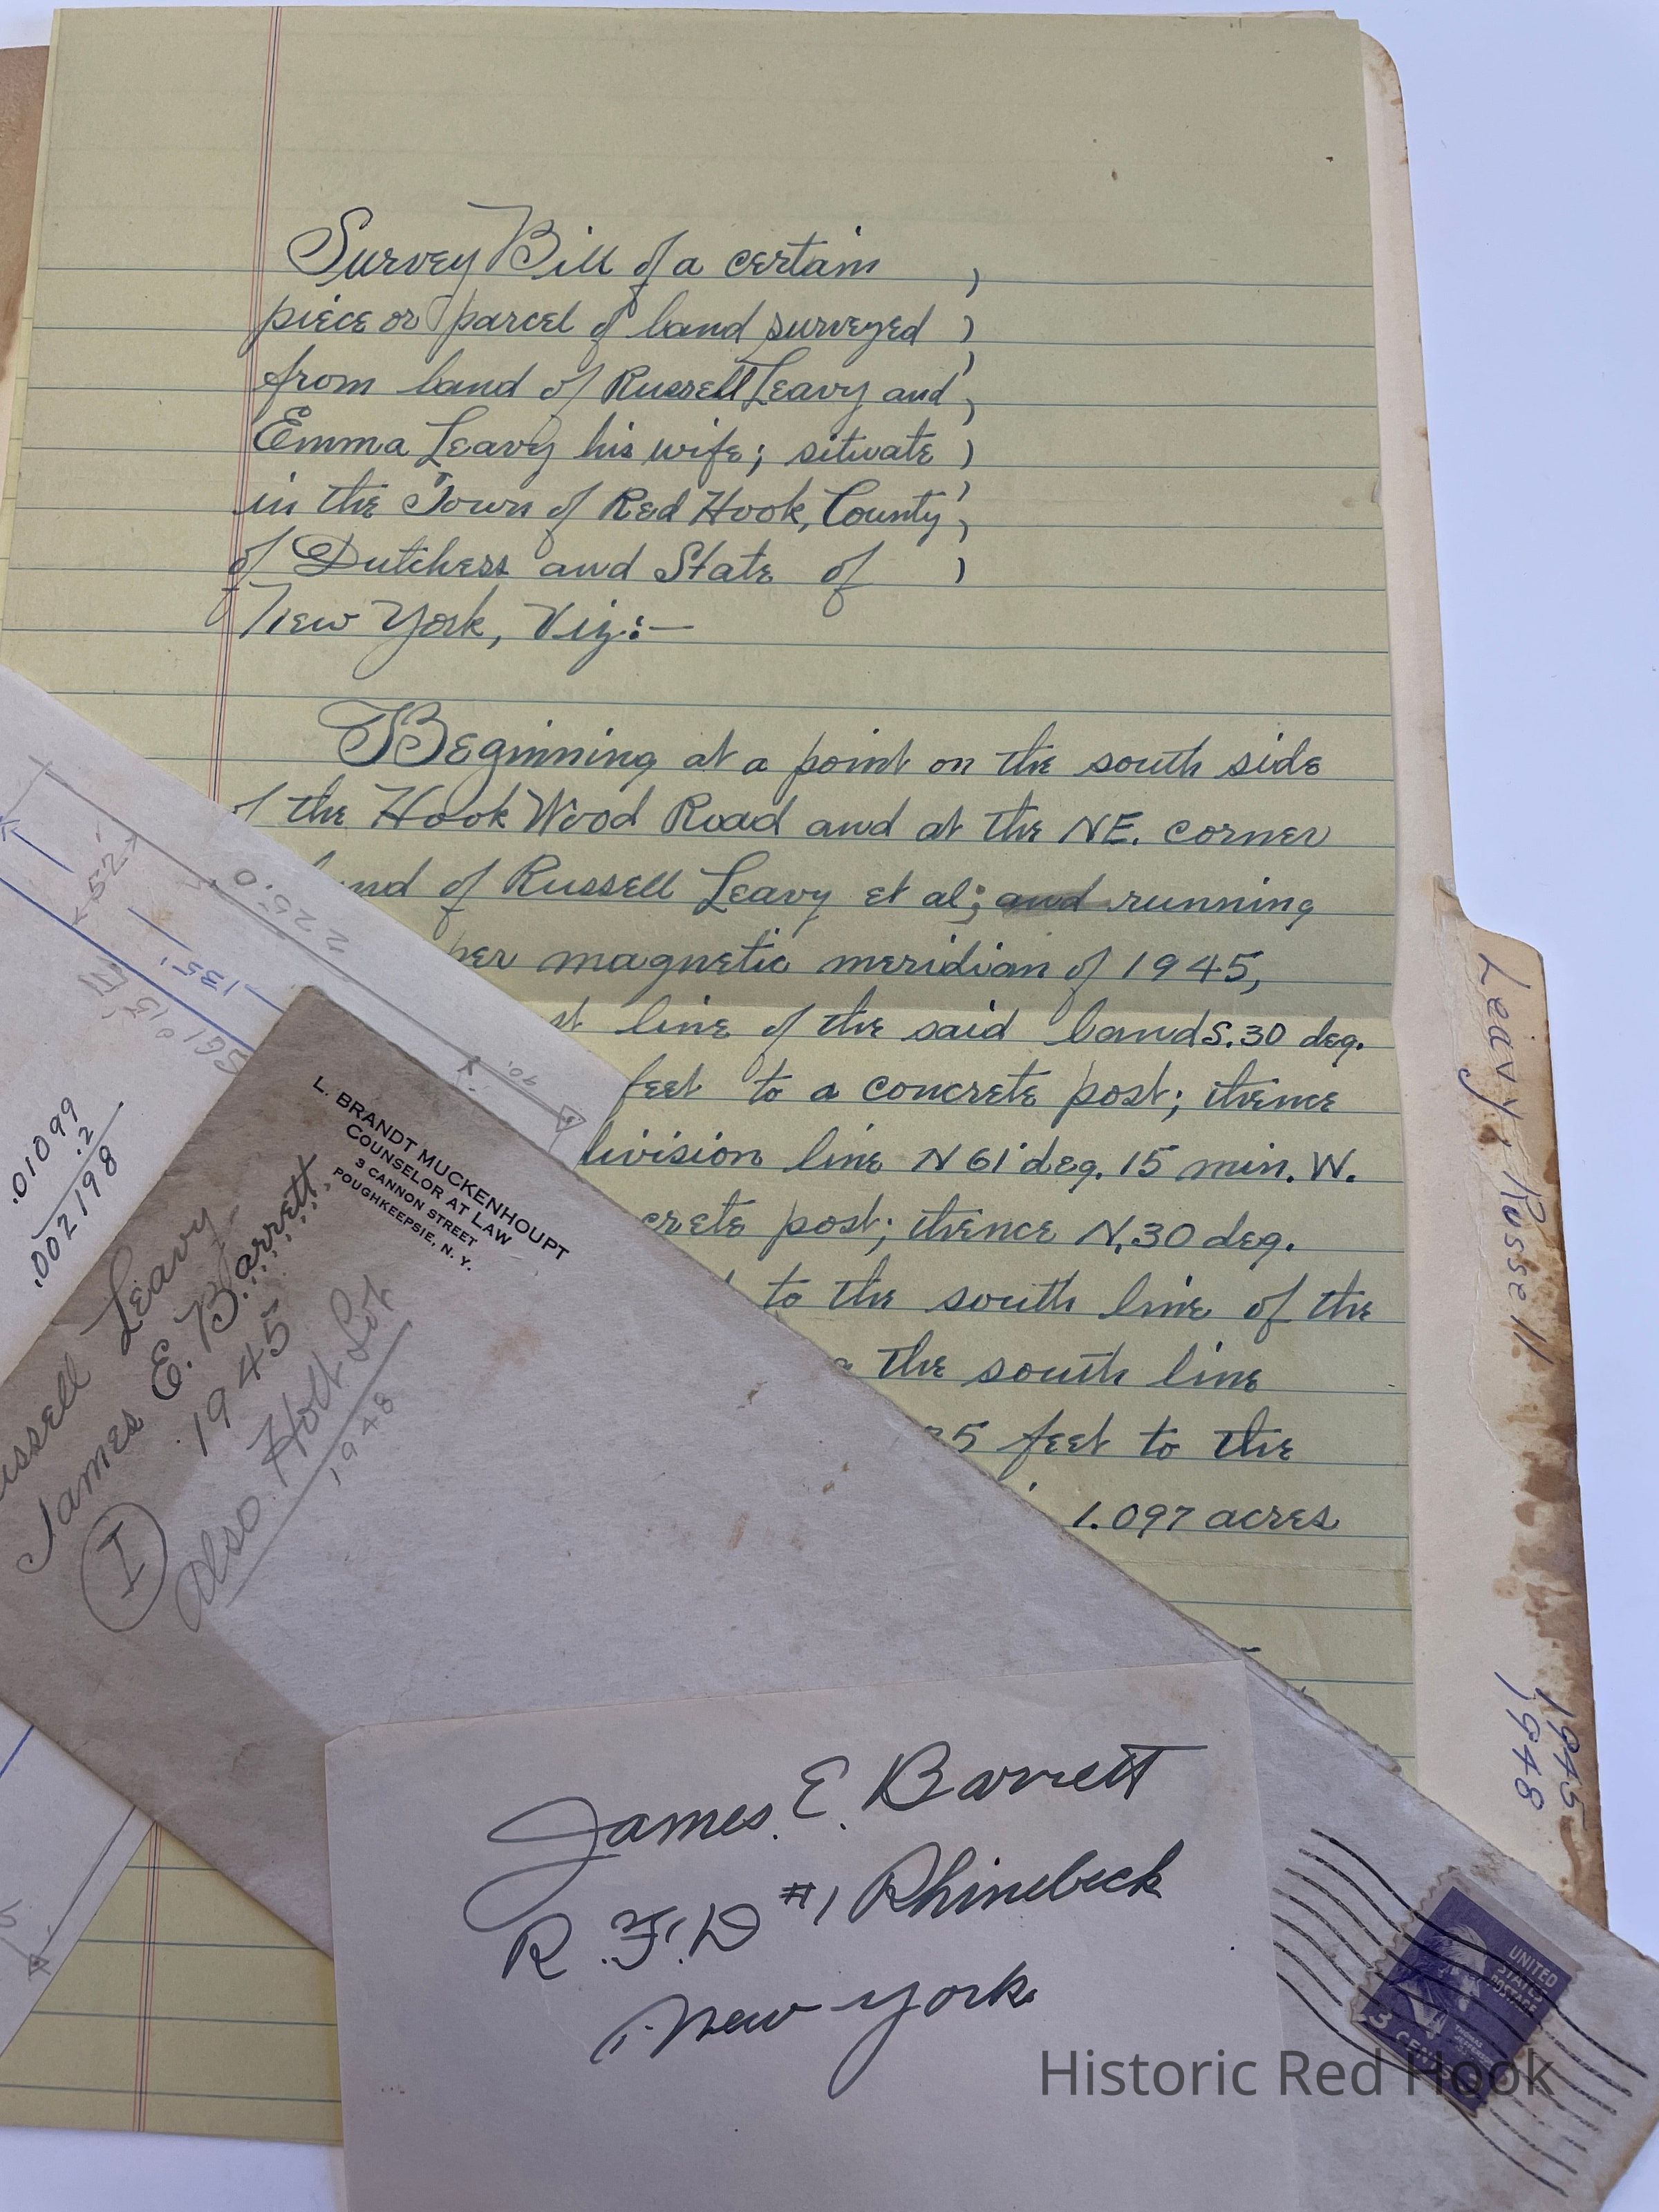 Survey Bill of a certain )
piece or parcel of land surveyed )
from land of Russell Leavy and )
Emma Leavy his wife; situate )
in the Town of Red Hook, County )
of Dutchess and State of )
New York, Viz:—
Beginning at a point on the south side
of the Hook Wood Road and at the NE. corner
of Russell Leavy et al; and running
magnetic meridian of 1945,
line of the said lands S. 30 deg.
feet to a concrete post; thence
division line N 61 deg. 15 min. W.
post; thence N. 30 deg.
to the south line of the
the south line
feet to the
1.097 acres
52'
225.0
135'
90.
.01099
.2
.002198
L. BRANDT MUCKENHOUPT
COUNSELOR AT LAW
3 CANNON STREET
POUGHKEEPSIE, N. Y.
Leavy
James E. Barrett
1945
I
also Holt Lot
1948
James. E. Barrett
R.F.D #1 Rhinebeck
New York
Leavy, Russell
1945
1948
UNITED
STATES
POSTAGE
THOMAS
JEFFERSON
3 CENTS
Historic Red Hook